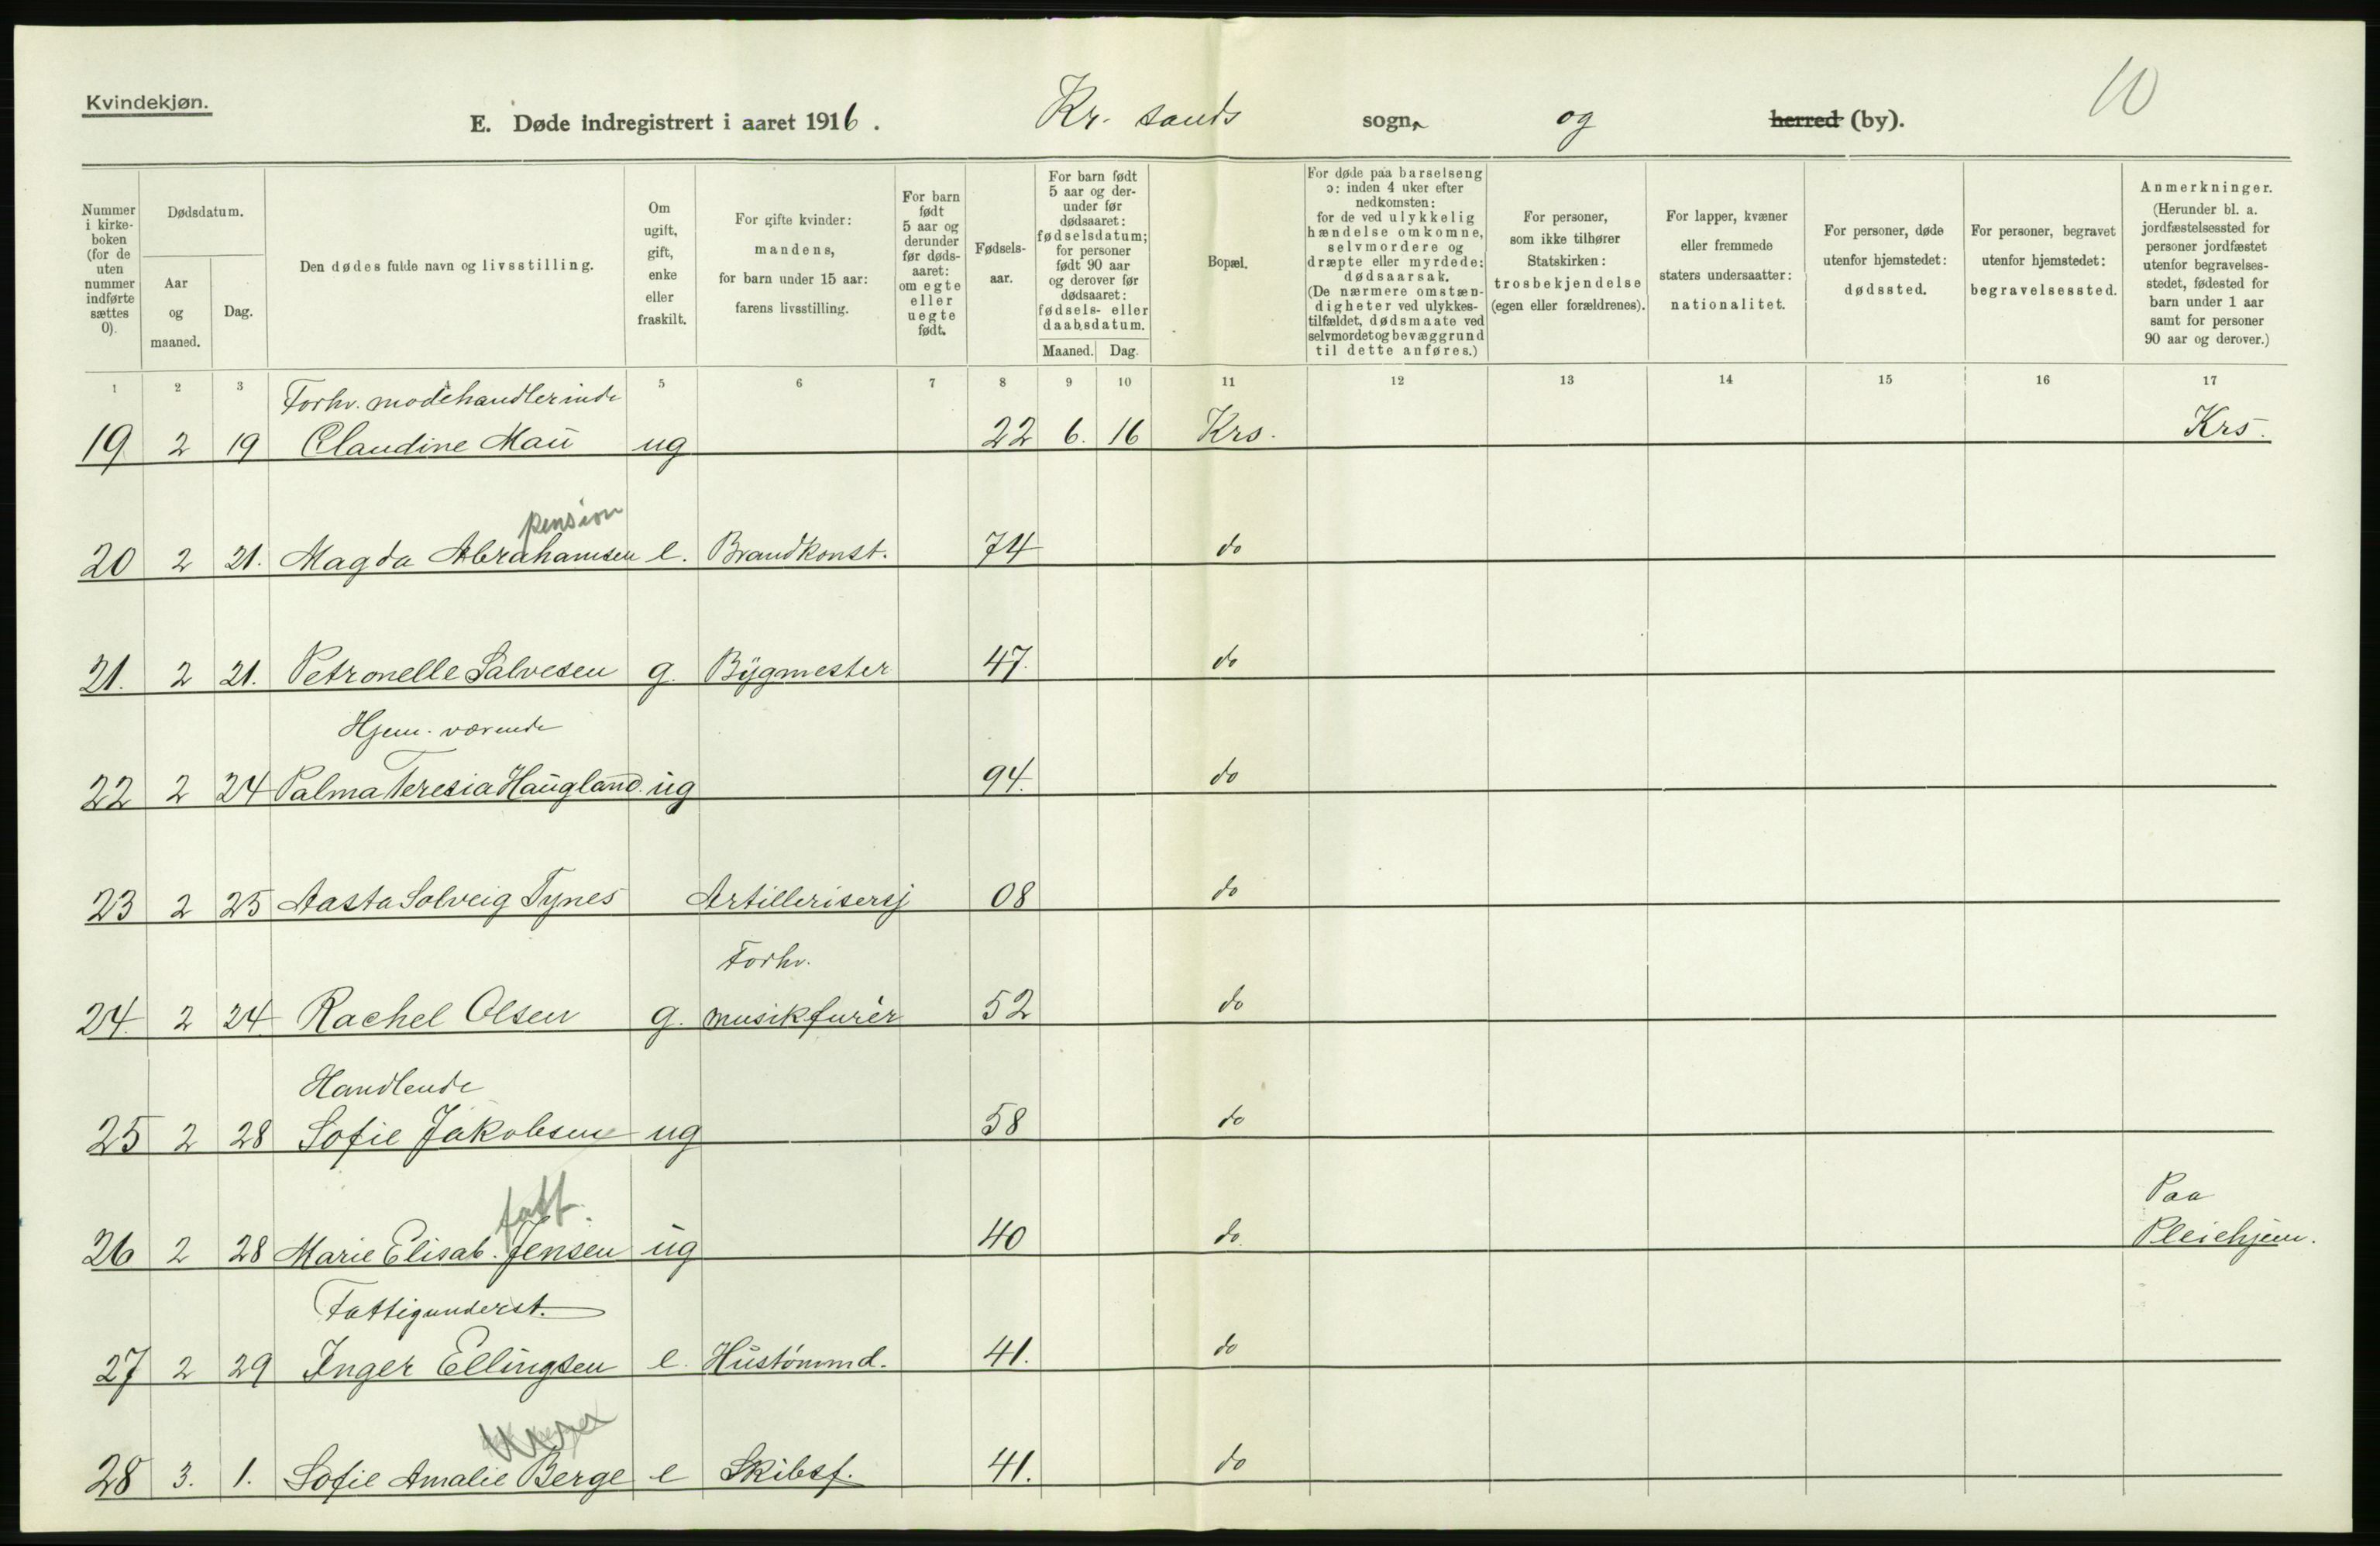 Kvindekjøn.
10
E. Døde indregistrert i aaret 1916. Kr. sands sogn og herred (by).
Nummer i kirke-boken (for de uten nummer indførte sættes 0).
Dødsdatum.
Aar og maaned.
Dag.
Den dødes fulde navn og livsstilling.
Om ugift, gift, enke eller fraskilt.
For gifte kvinder: mandens, for barn under 15 aar: farens livsstilling.
For barn født 5 aar og derunder før døds-aaret: om egte eller uegte født.
Fødsels-aar.
For barn født 5 aar og der-under før dødsaaret: fødselsdatum; for personer født 90 aar og derover før dødsaaret: fødsels- eller daabsdatum.
Maaned. Dag.
Bopæl.
For døde paa barselseng ɔ: inden 4 uker efter nedkomsten: for de ved ulykkelig hændelse omkomne, selvmordere og dræpte eller myrdede: dødsaarsak. (De nærmere omstæn-digheter ved ulykkes-tilfældet, dødsmaate ved selvmordet og bevæggrund til dette anføres.)
For personer, som ikke tilhører Statskirken: trosbekjendelse (egen eller forældrenes).
For lapper, kvæner eller fremmede staters undersaatter: nationalitet.
For personer, døde utenfor hjemstedet: dødssted.
For personer, begravet utenfor hjemstedet: begravelsessted.
Anmerkninger. (Herunder bl. a. jordfæstelsessted for personer jordfæstet utenfor begravelses-stedet, fødested for barn under 1 aar samt for personer 90 aar og derover.)
1 2 3 5 6 7 8 9 10 11 12 13 14 15 16 17
Forhv. modehandlerinde
19 2 19 Claudine Maū ug 22 6. 16 Krs. Krs.
pension
20 2 21. Magda Abrahamsen e. Brandkonst. 74 do
21. 2 21. Petronelle Salvesen g. Bygmester 47. do
Hjem. værende
22 2 24 Palma Teresia Haūgland ūg 94. do
23 2 25 Aasta Solveig Tynes Artillerisersj 08 do
Forhv.
24. 2 24 Rachel Olsen g. musikfurér 52 do
Handlende
25 2 28 Sofie Jakobsen ug 58 do
fatt. Paa
26 2 28 Marie Elisab. Jensen ūg 40 do. Pleiehjem.
Fattigunderst.
27 2 29 Inger Ellingsen e. Hūstømmd. 41. do
28 3. 1. Sofie Amalie Berge e Skibsf. 41. do